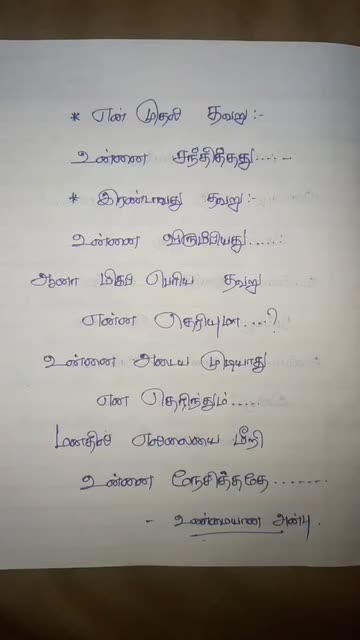 * என் முதல் தவறு:-
உன்னை சந்தித்தது.....
* இரண்டாவது தவறு:-
உன்னை விரும்பியது.....
ஆனா மிகப் பெரிய தவறு
என்ன தெரியுமா....?
உன்னை அடைய முடியாது
என தெரிந்தும்.....
மனதின் எல்லையை மீறி
உன்னை நேசித்ததே.......
- உண்மையான அன்பு.